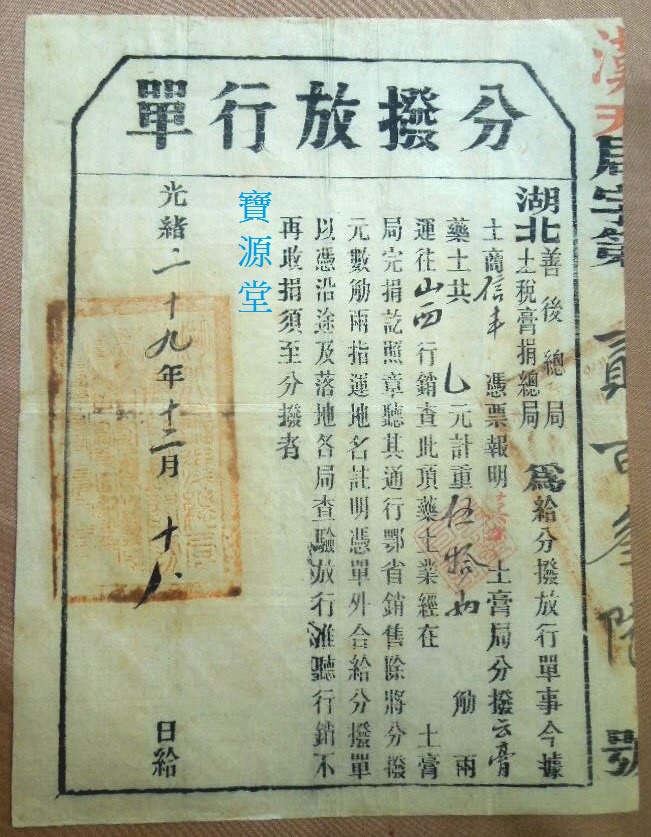 分撥放行單
湖北善後總局
土稅膏捐總局
為給分撥放行單事今據
土商信丰憑票報明 土膏局分撥云膏
藥土共 乚元計重伍拾兩 觔兩
運往山西行銷查此項藥土業經在 土膏
局完捐訖照章聽其通行鄂省銷售除將分撥
元數觔兩指運地名註明憑單外合給分撥單
以憑沿途及落地各局查驗放行准聽行銷不
再收捐須至分撥者
寶源堂
光緒二十九年十二月十八日給
漢
局字第貳百叁陸號